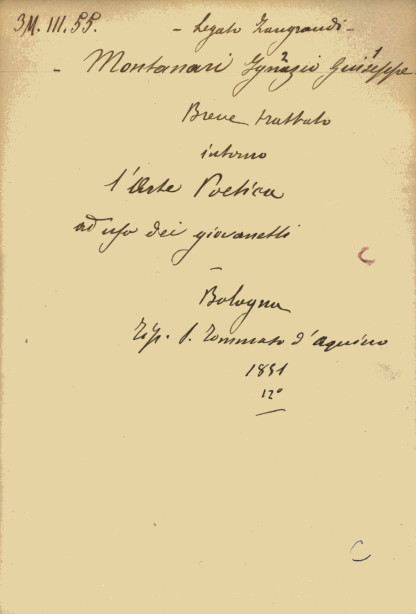 3M. III. 55. - Legato Zangrandi -
- Montanari Ignazio Giuseppe
2 1
Breve trattato
intorno
l'Arte Poetica
ad uso dei giovanetti
-
Bologna
Tip. S. Tommaso d'Aquino
1851
12°
C
C